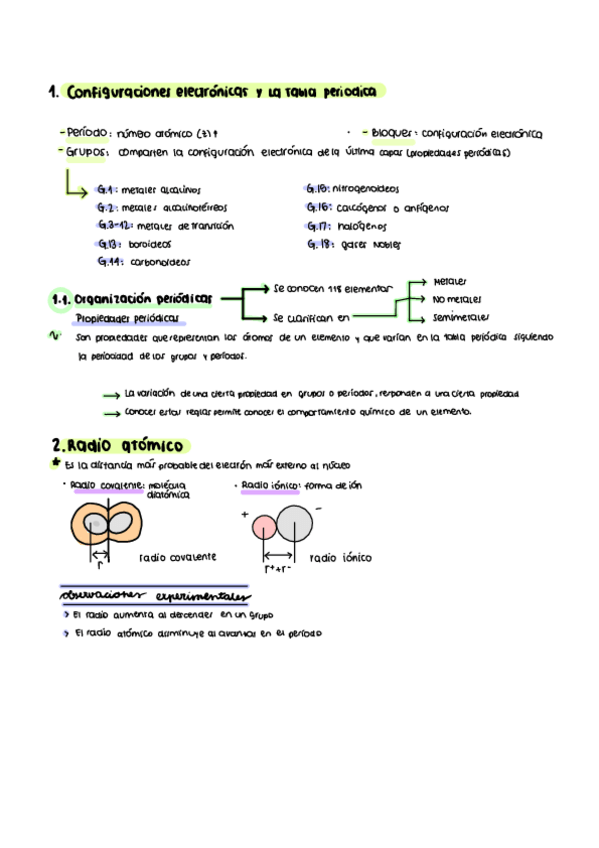 1. Configuraciones electrónicas y la tabla periodica
- Período: número atómico (z)↑
- Bloques: configuración electrónica
- Grupos: comparten la configuración electrónica de la última capas (propiedades periódicas)
G.1: metales alcalinos
G.2: metales alcalinotérreos
G.3-12: metales de transición
G.13: boroideos
G.14: carbonoideos
G.15: nitrogenoideos
G.16: calcógenos o anfígenos
G.17: halógenos
G.18: gases nobles
1.1. Organización periódicas
Se conocen 118 elementos
Se clasifican en
Metales
No metales
Semimetales
Propiedades periódicas
Son propiedades que representan los átomos de un elemento y que varían en la tabla periódica siguiendo
la periocidad de los grupos y períodos.
→ La variación de una cierta propiedad en grupos o períodos, responden a una cierta propiedad
→ Conocer estas reglas permite conocer el comportamiento químico de un elemento.
2. Radio atómico
* Es la distancia más probable del electrón más externo al núcleo
· Radio covalente: molécula
diatómica
· Radio iónico: forma de ión
+ -
radio covalente
r
radio iónico
r++r-
observaciones experimentales
> El radio aumenta al descender en un grupo
> El radio atómico disminuye al avanzar en el período